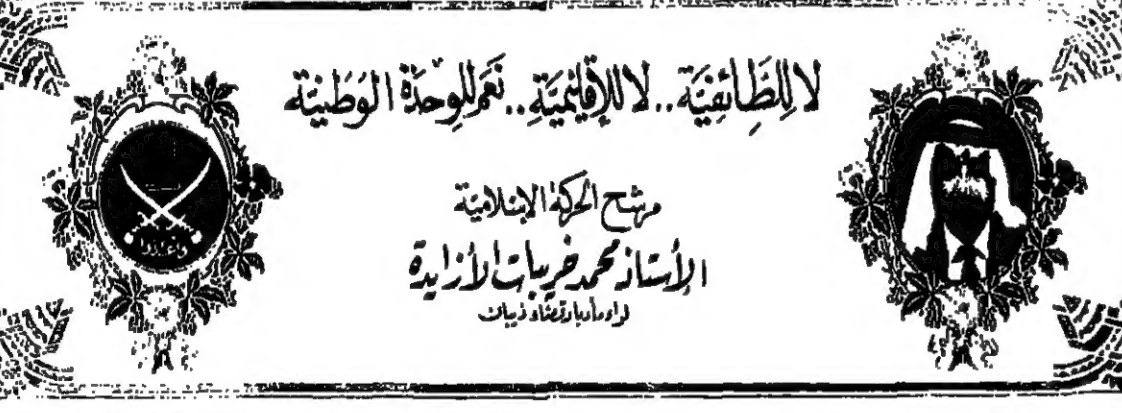 لا لِلطَّائِفِيَّة.. لا لِلإِقْلِيْمِيَّةِ.. نَعَم لِلوِحدَةِ الوَطَنِيَّة
مرشح الحركة الإسلامية
الأستاذ محمد خريبات الأزايدة
لواء مادبا وقضاء ذيبان